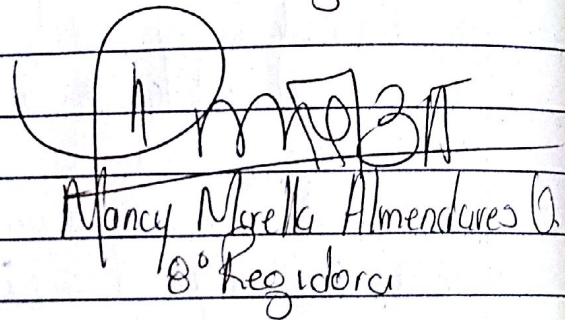 Nancy Myrella Almendares O.
8° Regidora